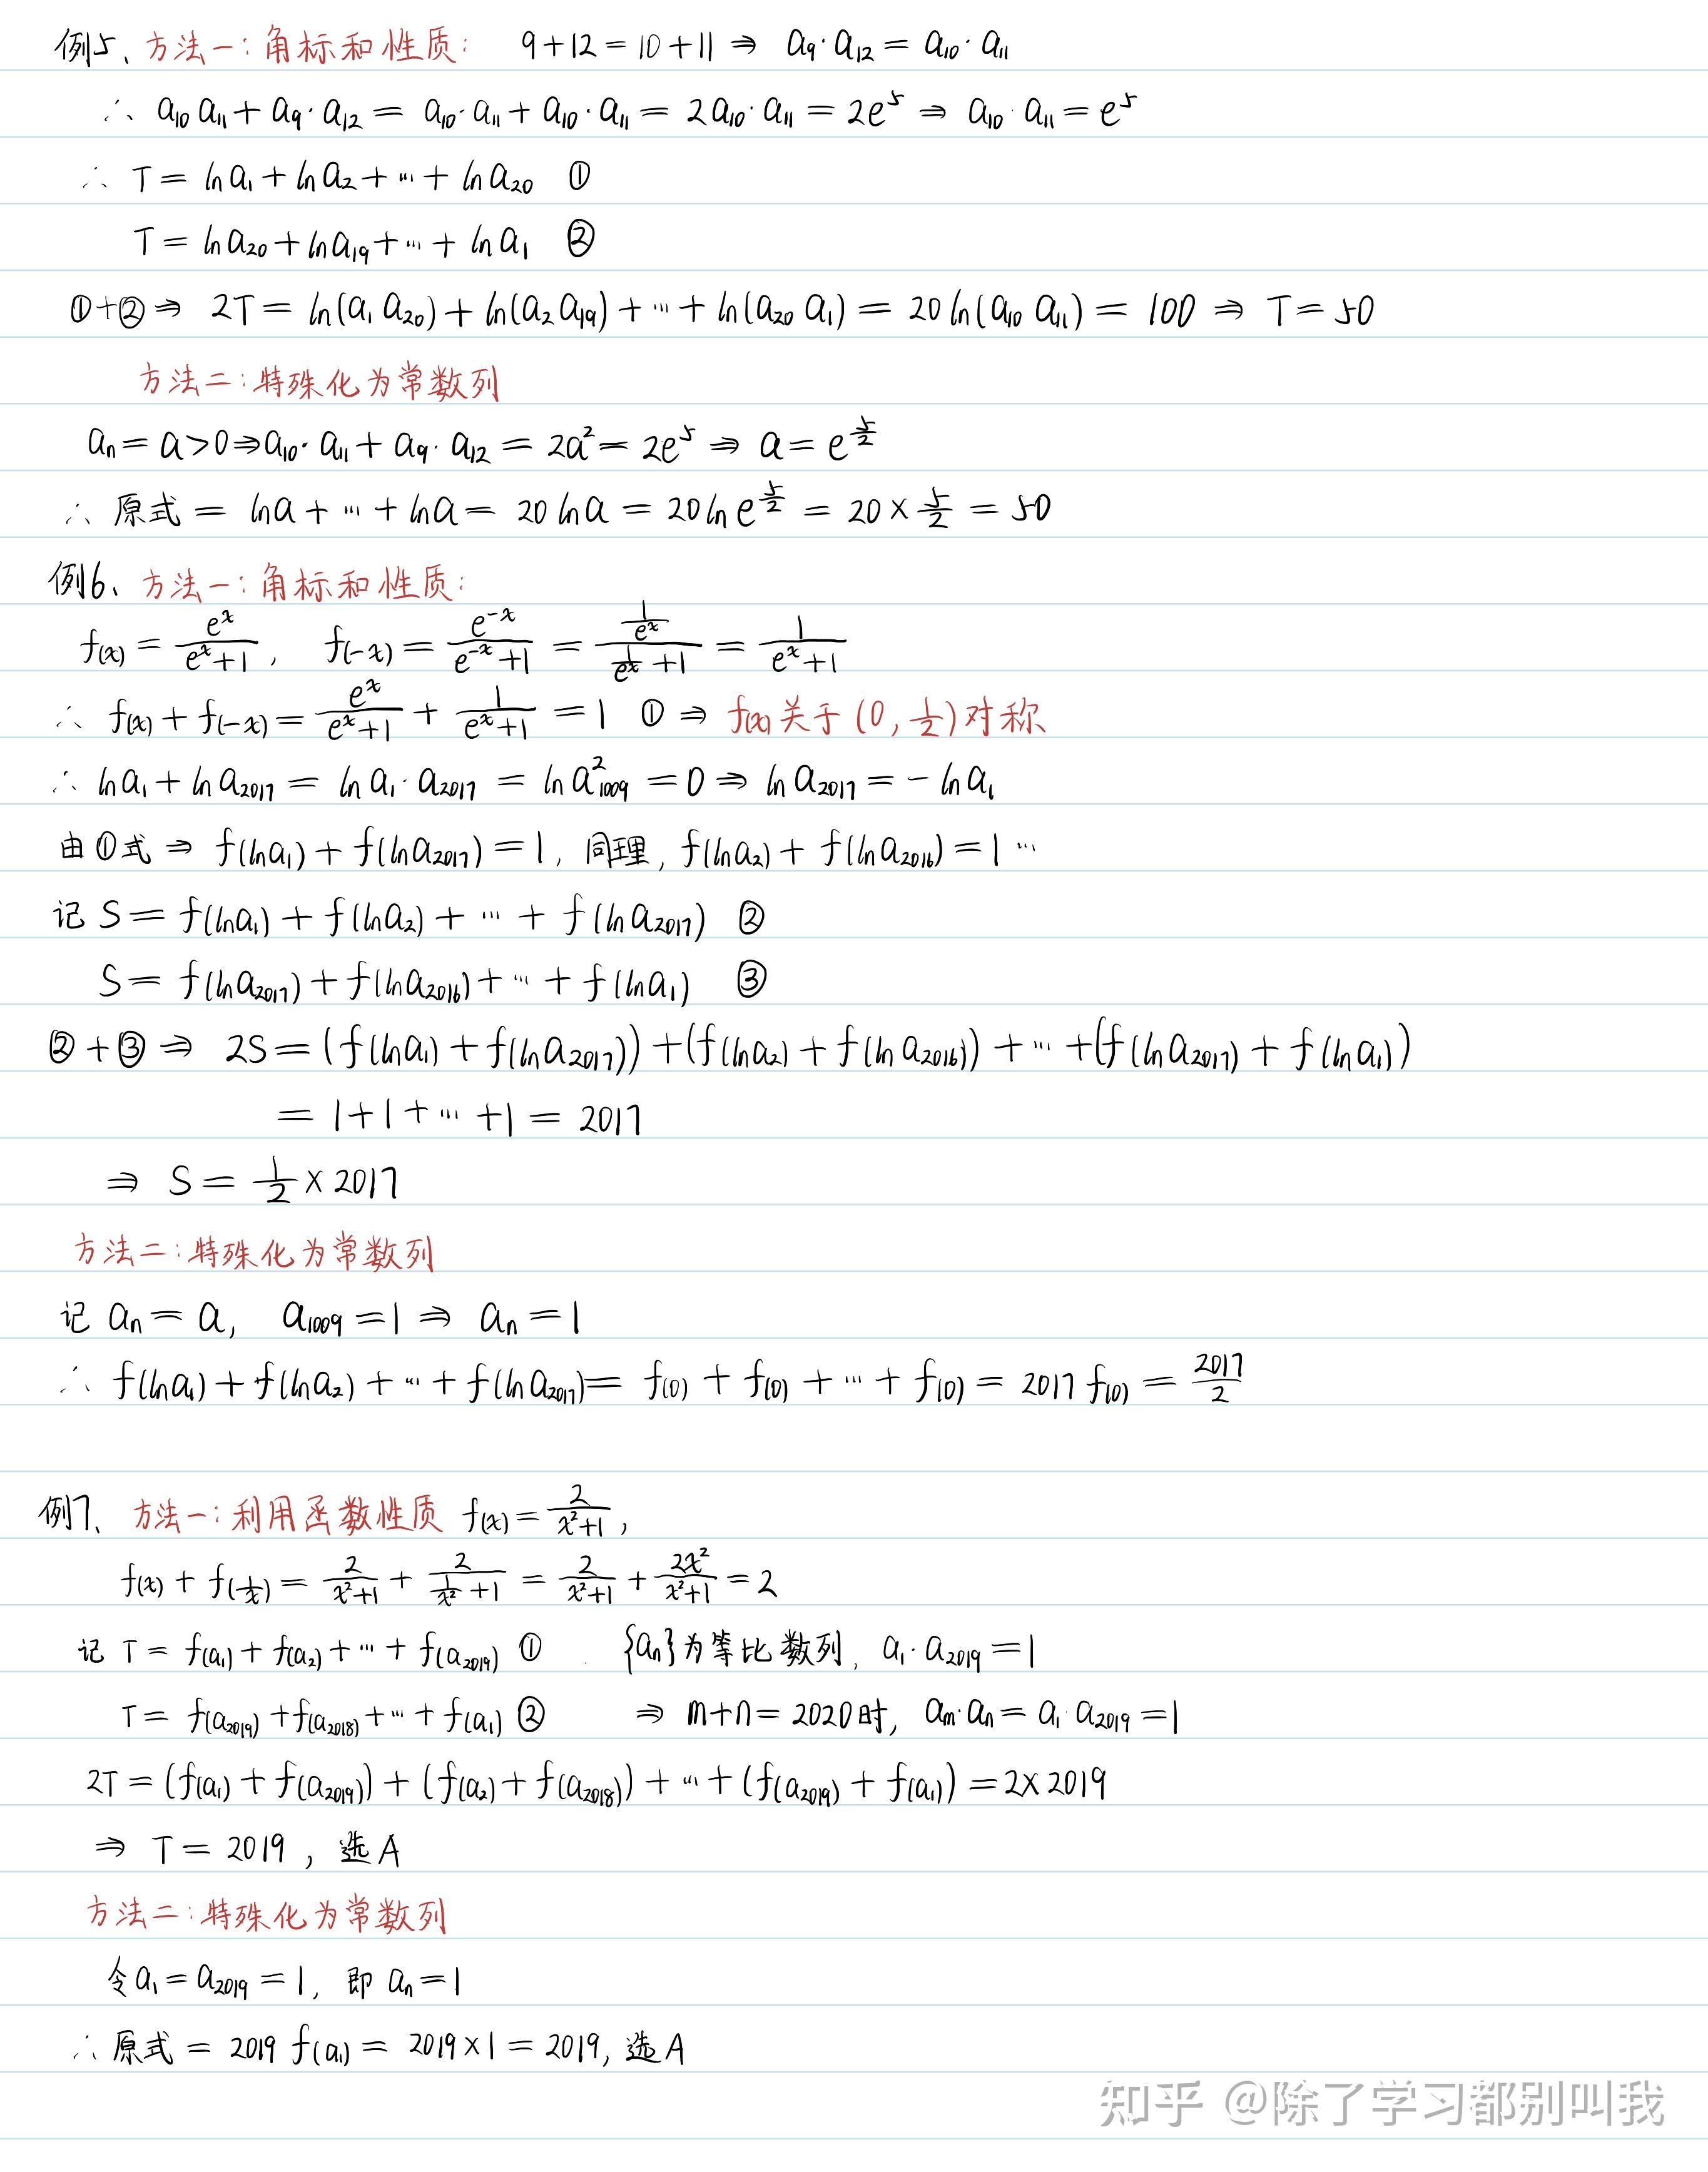 例5、方法一：角标和性质： 9+12=10+11 ⇒ a₉·a₁₂=a₁₀·a₁₁
∴ a₁₀a₁₁+a₉·a₁₂=a₁₀·a₁₁+a₁₀·a₁₁=2a₁₀·a₁₁=2e⁵ ⇒ a₁₀·a₁₁=e⁵
∴ T=lna₁+lna₂+…+lna₂₀ ①
T=lna₂₀+lna₁₉+…+lna₁ ②
①+② ⇒ 2T=ln(a₁a₂₀)+ln(a₂a₁₉)+…+ln(a₂₀a₁)=20ln(a₁₀a₁₁)=100 ⇒ T=50
方法二：特殊化为常数列
aₙ=a>0⇒a₁₀·a₁₁+a₉·a₁₂=2a²=2e⁵ ⇒ a=e^(5/2)
∴ 原式=lna+…+lna=20lna=20lne^(5/2)=20×5/2=50
例6、方法一：角标和性质：
f(x)=e^x/(e^x+1), f(-x)=e^(-x)/(e^(-x)+1)=(1/e^x)/(1/e^x+1)=1/(e^x+1)
∴ f(x)+f(-x)=e^x/(e^x+1)+1/(e^x+1)=1 ① ⇒ f(x)关于(0,1/2)对称
∴ lna₁+lna₂₀₁₇=lna₁·a₂₀₁₇=lna²₁₀₀₉=0 ⇒ lna₂₀₁₇=-lna₁
由①式 ⇒ f(lna₁)+f(lna₂₀₁₇)=1, 同理, f(lna₂)+f(lna₂₀₁₆)=1…
记 S=f(lna₁)+f(lna₂)+…+f(lna₂₀₁₇) ②
S=f(lna₂₀₁₇)+f(lna₂₀₁₆)+…+f(lna₁) ③
②+③ ⇒ 2S=(f(lna₁)+f(lna₂₀₁₇))+(f(lna₂)+f(lna₂₀₁₆))+…+(f(lna₂₀₁₇)+f(lna₁))
=1+1+…+1=2017
⇒ S=1/2×2017
方法二：特殊化为常数列
记 aₙ=a, a₁₀₀₉=1 ⇒ aₙ=1
∴ f(lna₁)+f(lna₂)+…+f(lna₂₀₁₇)=f(0)+f(0)+…+f(0)=2017f(0)=2017/2
例7、方法一：利用函数性质 f(x)=2/(x²+1),
f(x)+f(1/x)=2/(x²+1)+2/(1/x²+1)=2/(x²+1)+2x²/(x²+1)=2
记 T=f(a₁)+f(a₂)+…+f(a₂₀₁₉) ① {aₙ}为等比数列, a₁·a₂₀₁₉=1
T=f(a₂₀₁₉)+f(a₂₀₁₈)+…+f(a₁) ② ⇒ m+n=2020时, aₘ·aₙ=a₁·a₂₀₁₉=1
2T=(f(a₁)+f(a₂₀₁₉))+(f(a₂)+f(a₂₀₁₈))+…+(f(a₂₀₁₉)+f(a₁))=2×2019
⇒ T=2019, 选A
方法二：特殊化为常数列
令a₁=a₂₀₁₉=1, 即 aₙ=1
∴ 原式=2019f(a₁)=2019×1=2019, 选A
知乎 @除了学习都别叫我